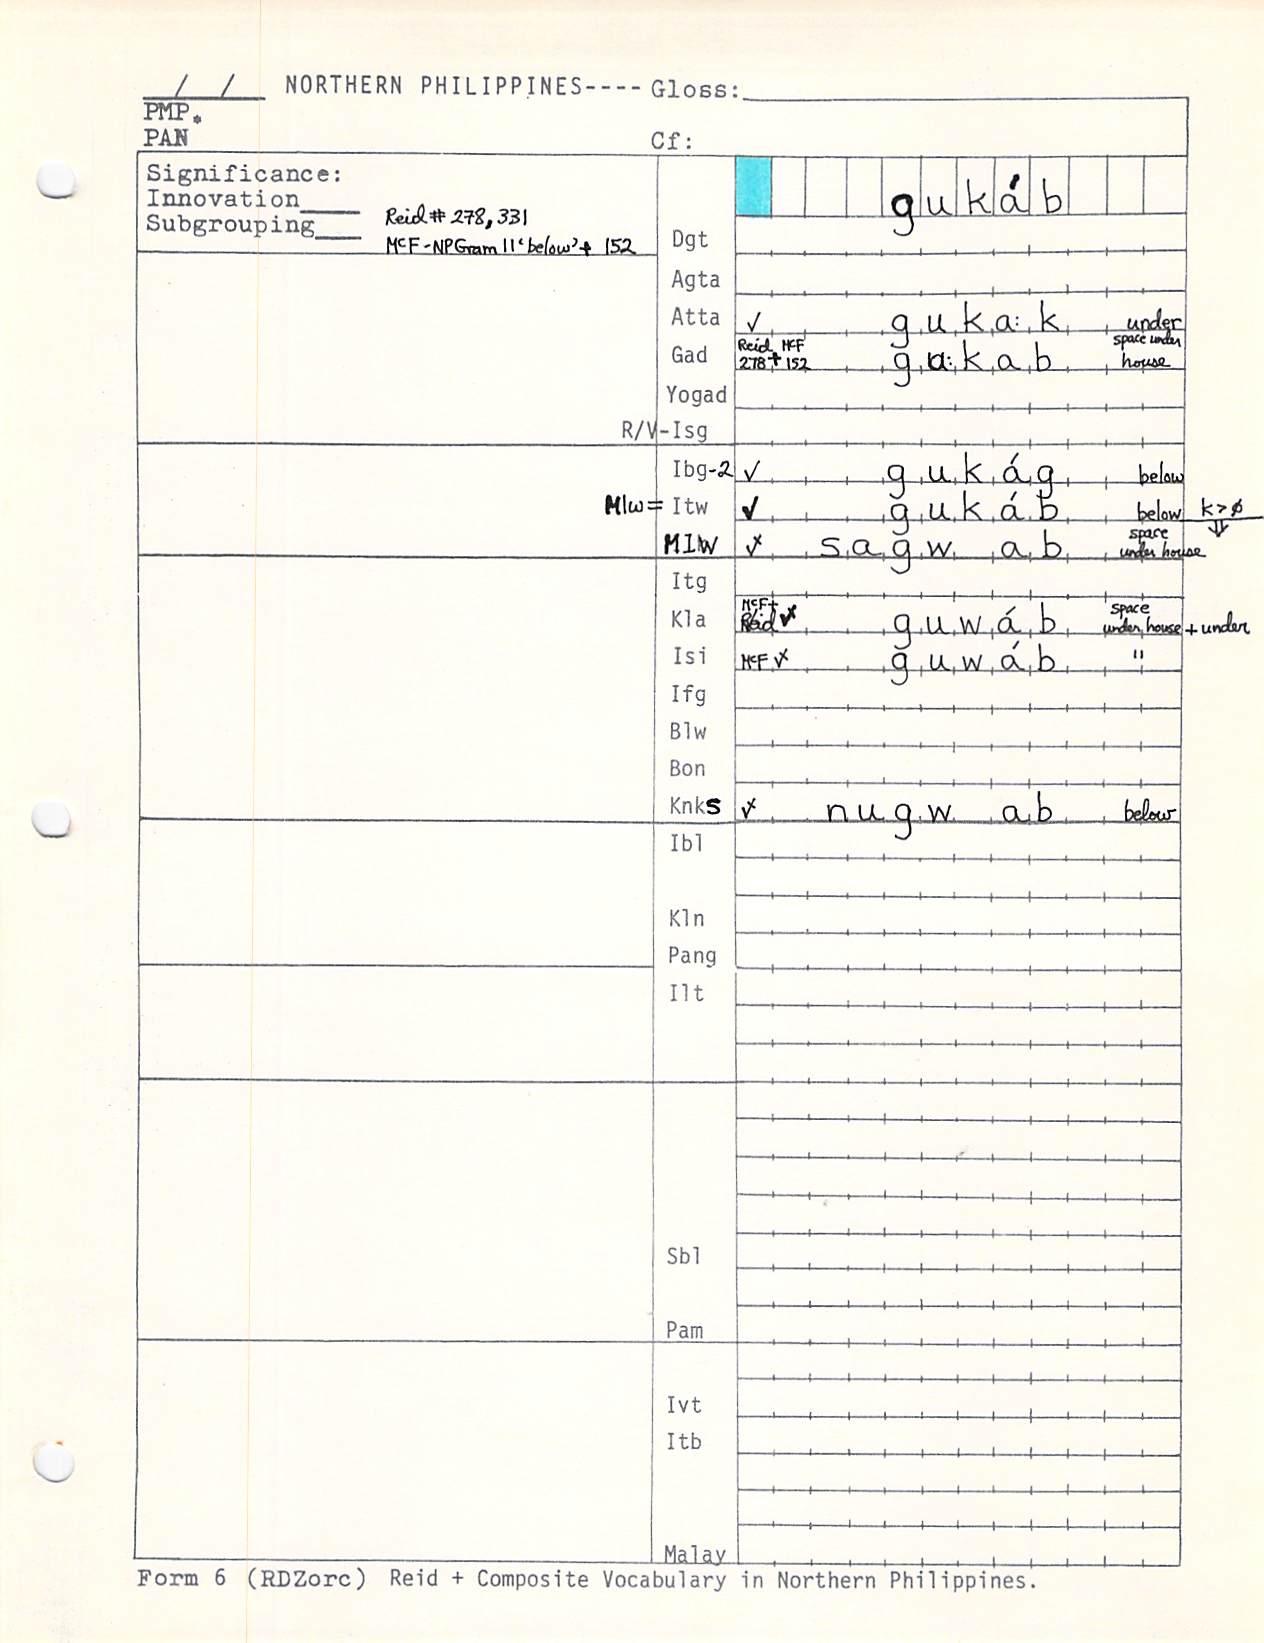 __/__/__ NORTHERN PHILIPPINES---- Gloss:
PMP *
PAN Cf:
Significance:
Innovation____ Reid # 278, 331
Subgrouping____ McF-NPGram 11 'below' + 152
gukáb
Dgt
Agta
Atta ✓ guka:k under
Gad Reid 278 + McF 152 ga:kab space under house
Yogad
R/V-Isg
Ibg-2 ✓ gukág below
Mlw = Itw ✓ gukáb below k > ø ⇓
MlW ✓ sagw ab space under house
Itg
Kla McF + Reid ✓ guwáb space under house + under
Isi McF ✓ guwáb "
Ifg
Blw
Bon
Knks ✓ nugw ab below
Ibl
Kln
Pang
Ilt
Sbl
Pam
Ivt
Itb
Malay
Form 6 (RDZorc) Reid + Composite Vocabulary in Northern Philippines.